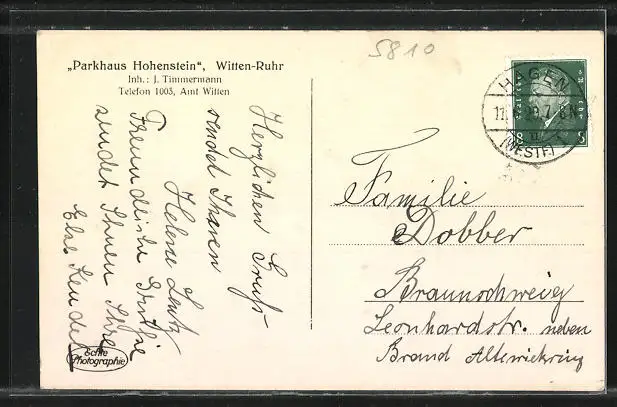 5810
„Parkhaus Hohenstein", Witten-Ruhr
Inh.: J. Timmermann
Telefon 1003, Amt Witten
Herzlichen Gruß
sendet Ihnen
Helene Lentz
Freundliche Grüße
sendet Ihnen Ihre
Else Kendel
Echte
Photographie
HAGEN
(WESTF)
8
8
Familie
Dobber
Braunschweig
Leonhardstr. neben
Brand Altewiekring